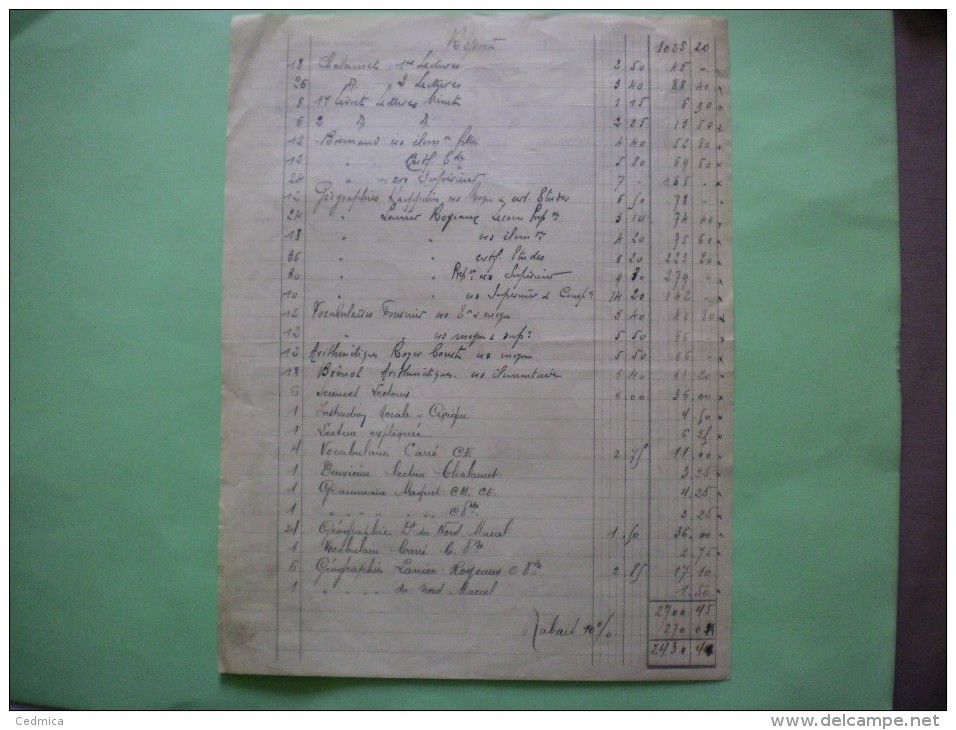 Report 1025 20
18 Chalamet 1re Lectures 2 50 45 -
26 " 2 Lectures 3 40 88 40
8 Lectures 1 15
6 2 " " 2 25 13 50
12 crs élémre filles 4 40 52 80
12 " " Certf. Edes 5 80 69 60
24 " " crs Supérieur 7 - 168 -
12 Géographies crs Moyen & cert. Etudes 6 50 78 -
24 " Lanier Rogeaux 3 10 74 40
18 " " crs élémre 4 20 75 60
36 " " certf. Etudes 6 20 223 20
30 " " crs Supérieur 9 30 279 -
10 " " crs Supérieur & Compre 14 20 142
12 Vocabulaires Fournier crs & moyen 5 40 64 80
12 " " crs moyen & supr 5 50 66 -
12 Arithmétiques crs moyen 5 50 66 -
18 Arithmétiques crs élémentaire 3 40 61 20
6 Sciences Ledoux 6.00 36.00
1 Instruction Morale - Civique 4 50
1 Lecture expliquée 6 25
4 Vocabulaire Carré CE 2 75 11.00
1 Deuxième lecture Chalamet 3.25
1 Grammaire Maquet CM. CE. 4.25
1 " " " " " 2 25
24 Géographie Dt du Nord Marcel 1.50 36.00
1 Vocabulaire Carré C. 2.75
6 Géographies Lanier Rogeaux C 2.85 17.10
1 " " " " du Nord Marcel 1.50
2700 45
Rabais 10% 270 04
2430 41
Cedmica
www.delcampe.net